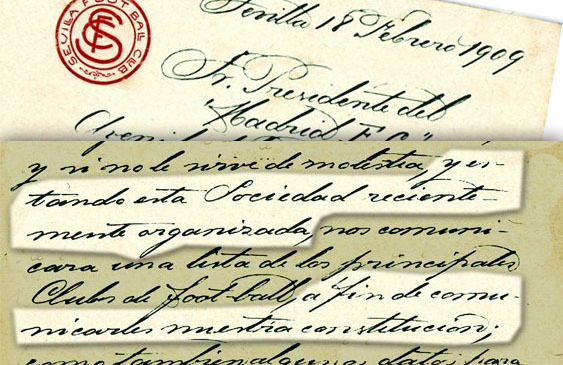 SEVILLA FOOT BALL CLUB
Sevilla 18 Febrero 1909
Sr. Presidente del
"Madrid F.C."
y si no le sirve de molestia, y es-
tando esta Sociedad reciente-
mente organizada, nos comuni-
cara una lista de los principales
Clubs de foot-ball a fin de comu-
nicarles nuestra constitución;
como tambien algunos datos para